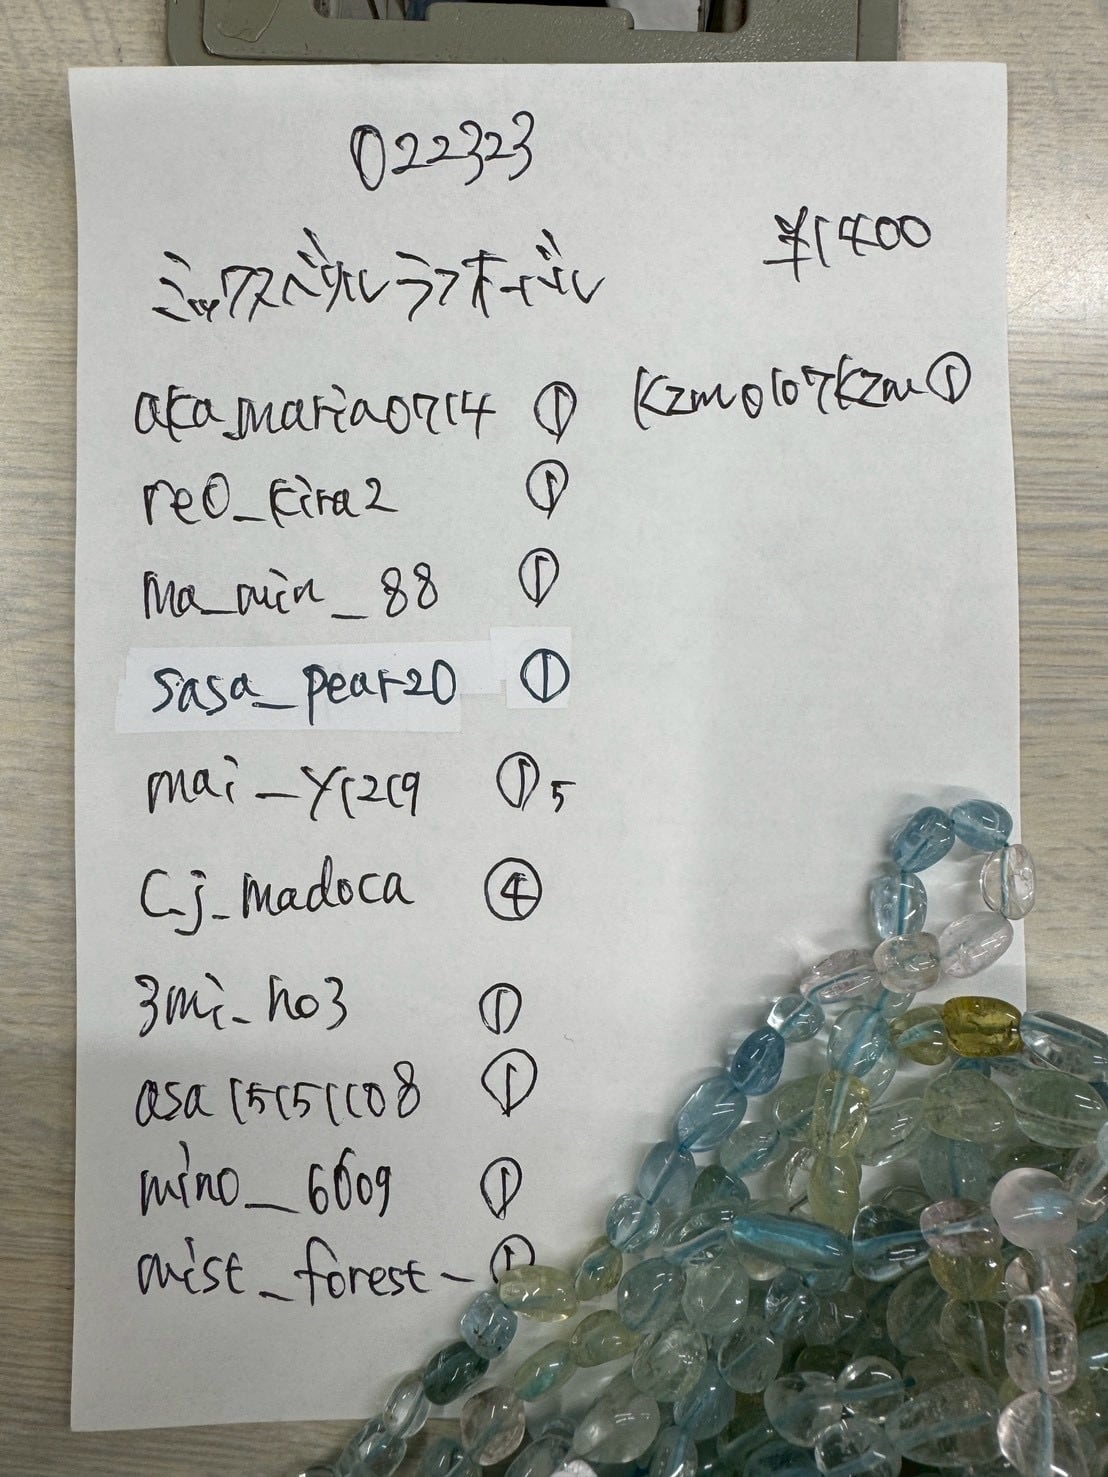 022323
¥1400
ミックスベリルラフオーバル
aka_maria0714 ①
kzm0107kzm ①
reo_kira2 ①
ma_min_88 ①
sasa_pear20 ①
mai_y1219 ① 5
c.j_madoca ④
3mi_ho3 ①
asa15151108 ①
mino_6609 ①
mist_forest_ ①